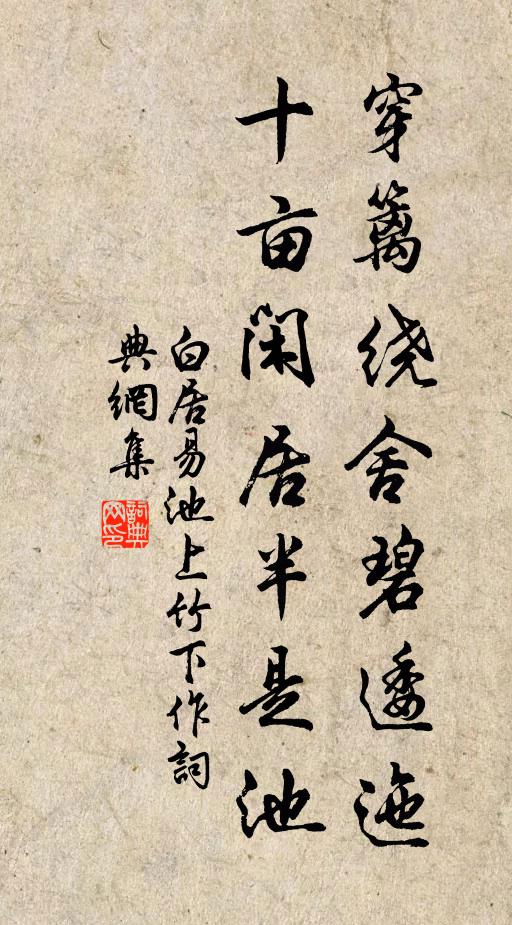 穿篱绕舍碧逶迤
十亩闲居半是池
白居易池上竹下作詞
典網集
詞典网印